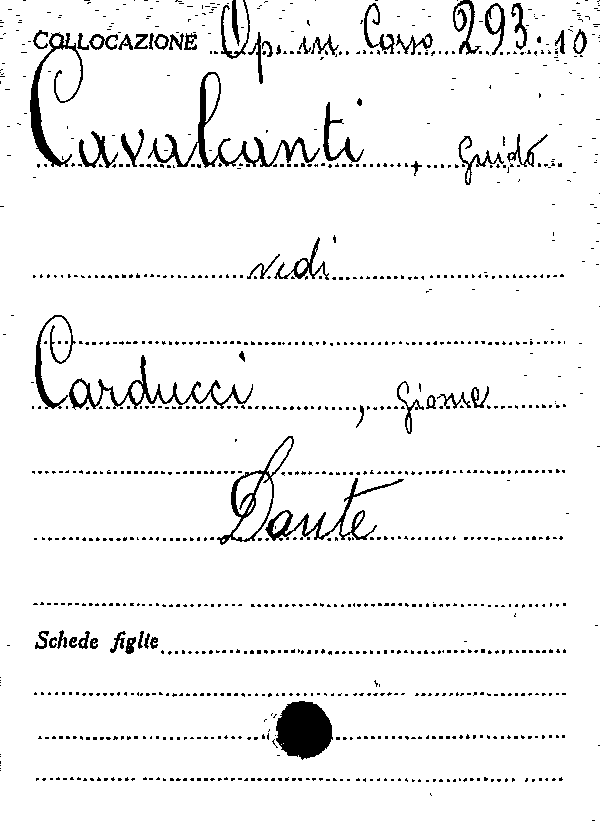 COLLOCAZIONE Op. in Corso 293.10
Cavalcanti, Guido
vedi
Carducci, Giosue
Dante
Schede figlie